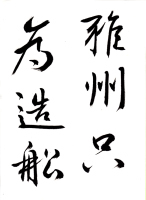 雅州只
為造船